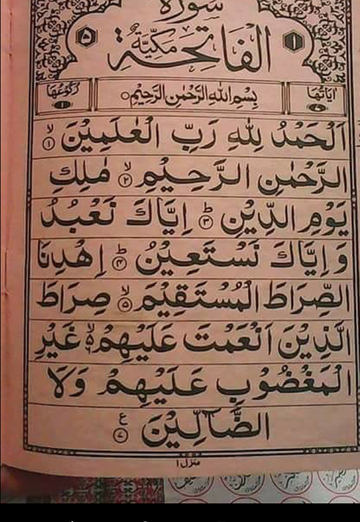 سورة
۱ الفاتحة مكية ۵
اٰیاتها ۷ بِسْمِ اللهِ الرَّحْمٰنِ الرَّحِيْمِ ركوعها ۱
اَلْحَمْدُ لِلّٰهِ رَبِّ الْعٰلَمِيْنَ ۱
الرَّحْمٰنِ الرَّحِيْمِ ۲ مٰلِكِ
يَوْمِ الدِّيْنِ ۳ اِيَّاكَ نَعْبُدُ
وَ اِيَّاكَ نَسْتَعِيْنُ ۴ اِهْدِنَا
الصِّرَاطَ الْمُسْتَقِيْمَ ۵ صِرَاطَ
الَّذِيْنَ اَنْعَمْتَ عَلَيْهِمْ ۶ غَيْرِ
الْمَغْضُوْبِ عَلَيْهِمْ وَلَا
الضَّآلِّيْنَ ۷ ع
منزل ۱